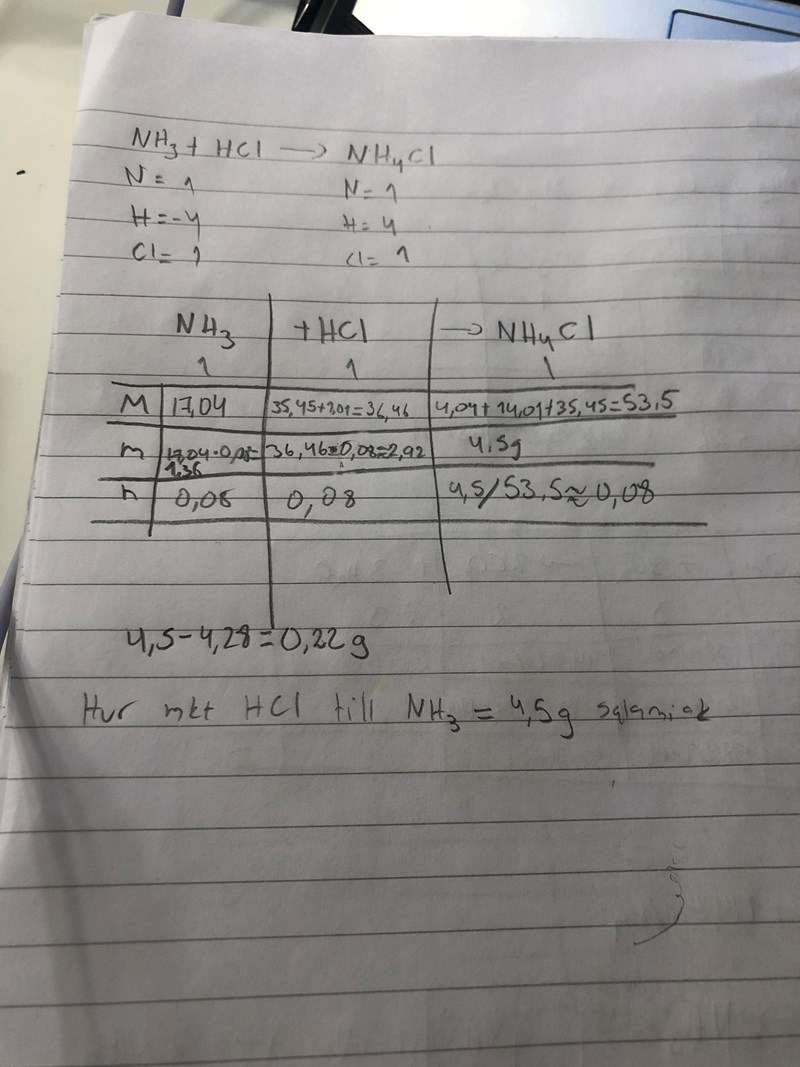 NH₃ + HCl → NH₄Cl
N = 1 N = 1
H = 4 H = 4
Cl = 1 Cl = 1
NH₃ + HCl → NH₄Cl
1 1 1
M 17,04 35,45+1,01=36,46 4,04+14,01+35,45=53,5
m 17,04·0,08= 36,46·0,08=2,92 4,5g
1,36
n 0,08 0,08 4,5/53,5≈0,08
4,5-4,28=0,22g
Hur mkt HCl till NH₃ = 4,5g salamiak